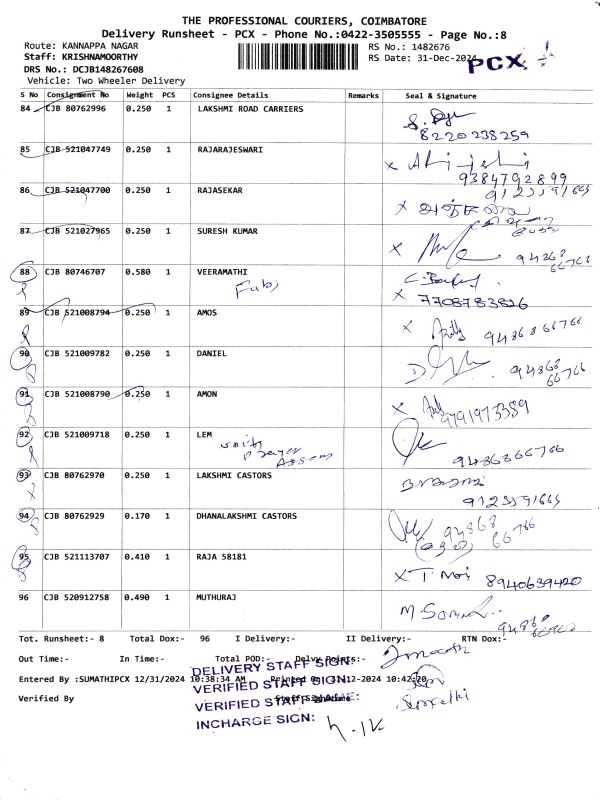 THE PROFESSIONAL COURIERS, COIMBATORE
Delivery Runsheet - PCX - Phone No.:0422-3505555 - Page No.:8
Route: KANNAPPA NAGAR RS No.: 1482676
Staff: KRISHNAMOORTHY RS Date: 31-Dec-2024 PCX
DRS No.: DCJB148267608
Vehicle: Two Wheeler Delivery
S No Consignment No Weight PCS Consignee Details Remarks Seal & Signature
84 CJB 80762996 0.250 1 LAKSHMI ROAD CARRIERS
8220238259
85 CJB 521047749 0.250 1 RAJARAJESWARI
9384792899
86 CJB 521047700 0.250 1 RAJASEKAR
87 CJB 521027965 0.250 1 SURESH KUMAR
94868
66766
88 CJB 80746707 0.580 1 VEERAMATHI
7708783826
89 CJB 521008794 0.250 1 AMOS
9486866766
90 CJB 521009782 0.250 1 DANIEL
94868
66766
91 CJB 521008790 0.250 1 AMON
9791973359
92 CJB 521009718 0.250 1 LEM
prayer
9486866766
93 CJB 80762970 0.250 1 LAKSHMI CASTORS
94 CJB 80762929 0.170 1 DHANALAKSHMI CASTORS
94868
66766
95 CJB 521113707 0.410 1 RAJA 58181
8940639420
96 CJB 520912758 0.490 1 MUTHURAJ
Tot. Runsheet:- 8 Total Dox:- 96 I Delivery:- II Delivery:- RTN Dox:-
Out Time:- In Time:- Total POD:- Delvy Points:-
DELIVERY STAFF SIGN:
Entered By :SUMATHIPCX 12/31/2024 10:38:34 AM Printed On :31-12-2024 10:42:20
VERIFIED STAFF SIGN:
Verified By
VERIFIED STAFF NAME:
Sumathi
INCHARGE SIGN: